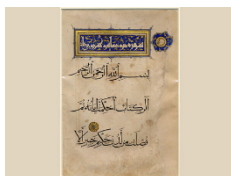 بسم الله الرحمن الرحيم
الر كتاب أحكمت آياته ثم
فصلت من لدن حكيم خبير ألا